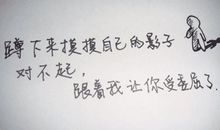 蹲下来摸摸自己的影子
对不起，
跟着我让你受委屈了